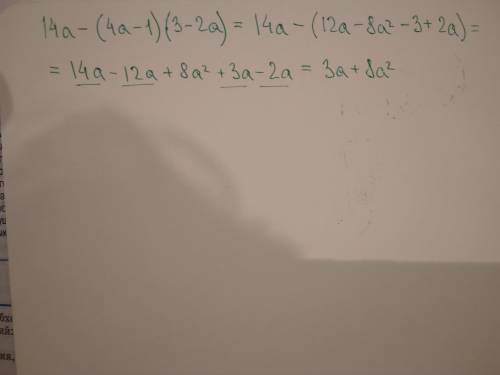 14a-(4a-1)(3-2a)=14a-(12a-8a²-3+2a)=
=14a-12a+8a²+3a-2a=3a+8a²